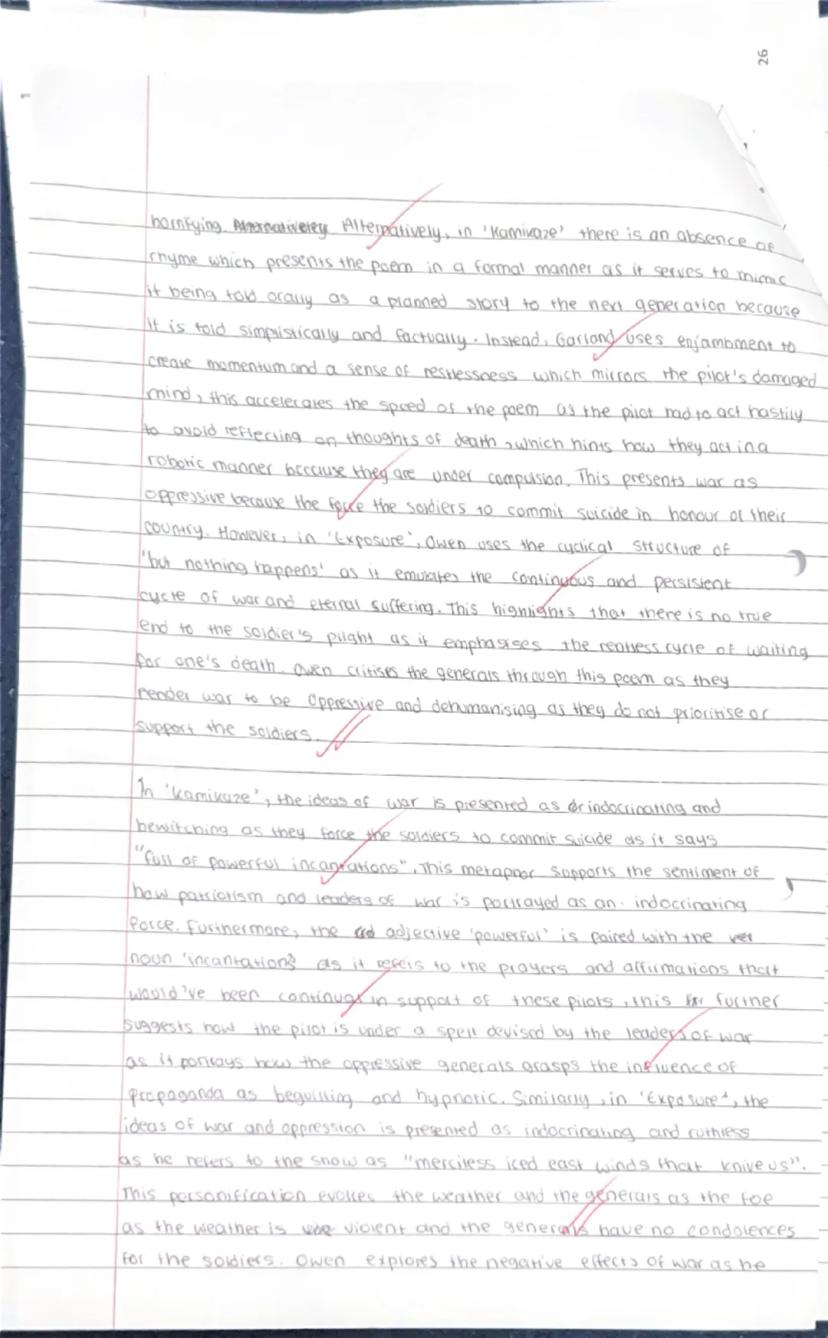 26
horrifying. Alternatively, in 'Kamikaze' there is an absence of
rhyme which presents the poem in a formal manner as it serves to mimic
it being told orally as a planned story to the next generation because
it is told simplistically and factually. Instead, Garland uses enjambment to
create momentum and a sense of restlessness which mirrors the pilot's damaged
mind, this accelerates the speed of the poem as the pilot had to act hastily
to avoid reflecting on thoughts of death, which hints how they act in a
robotic manner because they are under compulsion. This presents war as
oppressive because the force the soldiers to commit suicide in honour of their
country. However, in 'Exposure', Owen uses the cyclical structure of
'but nothing happens' as it emulates the continuous and persistent
cycle of war and eternal suffering. This highlights that there is no true
end to the soldier's plight as it emphasises the cycle of waiting
for one's death. Owen critises the generals through this poem as they
render war to be oppressive and dehumanising as they do not prioritise or
support the soldiers.
In 'Kamikaze', the ideas of war is presented as indocrinating and
bewitching as they force the soldiers to commit suicide as it says
"full of powerful incantations". This metaphor supports the sentiment of
how patriotism and leaders of war is portrayed as an indocrinating
force. Furthermore, the adjective 'powerful' is paired with the
noun 'incantations' as it refers to the prayers and affirmations that
would've been in support of these pilots, this further
suggests how the pilot is under a spell devised by the leaders of war
as it portrays how the oppressive generals grasps the influence of
propaganda as beguiling and hypnotic. Similarly, in 'Exposure', the
ideas of war and oppression is presented as indocrinating and ruthless
as he refers to the snow as "merciless iced east winds that knive us".
This personification evokes the weather and the generals as the foe
as the weather is violent and the generals have no condolences
for the soldiers. Owen explores the negative effects of war as he